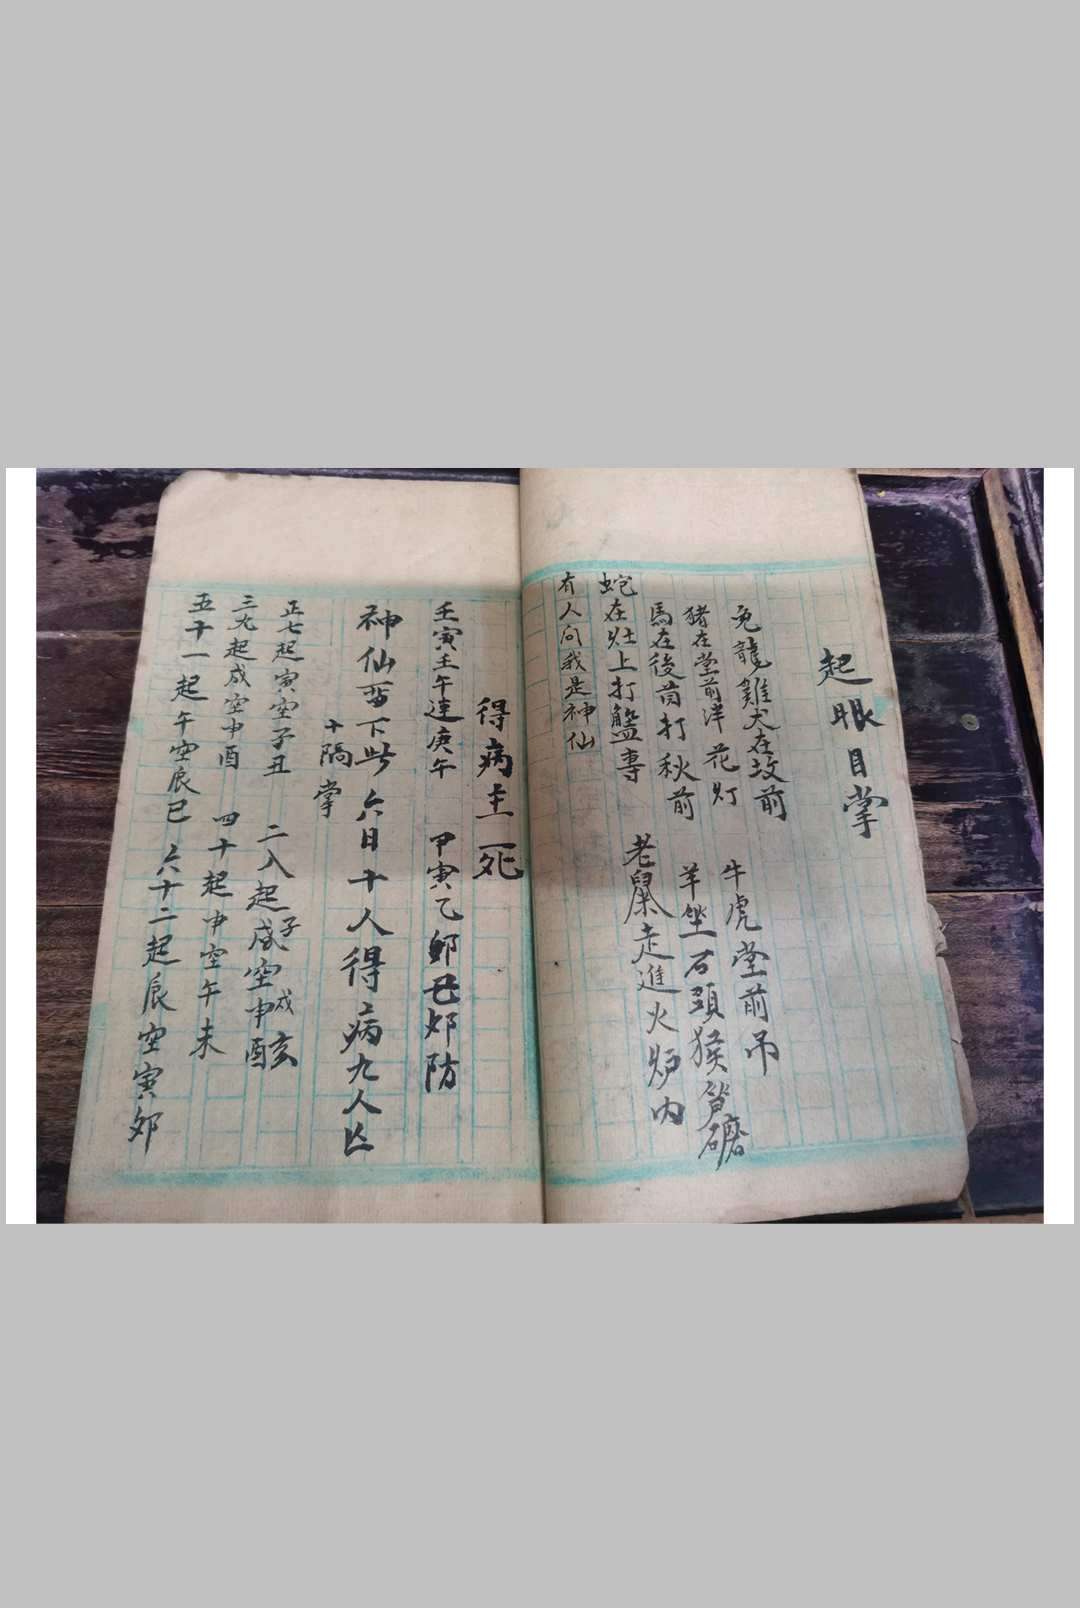 起眼目掌
兔龍雞犬在坟前 牛虎堂前吊
猪在堂前洋花灯 羊坐石頭猴答磨
馬在後茼打秋前 老鼠走進火炉内
蛇在灶上打盤專
有人问我是神仙
得病主死
壬寅壬午連庚午 甲寅乙卯己卯防
神仙留下此六日 十人得病九人亡
十隔掌
正七起寅空子丑 二八起子空戌亥
三九起戌空申酉 四十起申空午未
五十一起午空辰巳 六十二起辰空寅卯